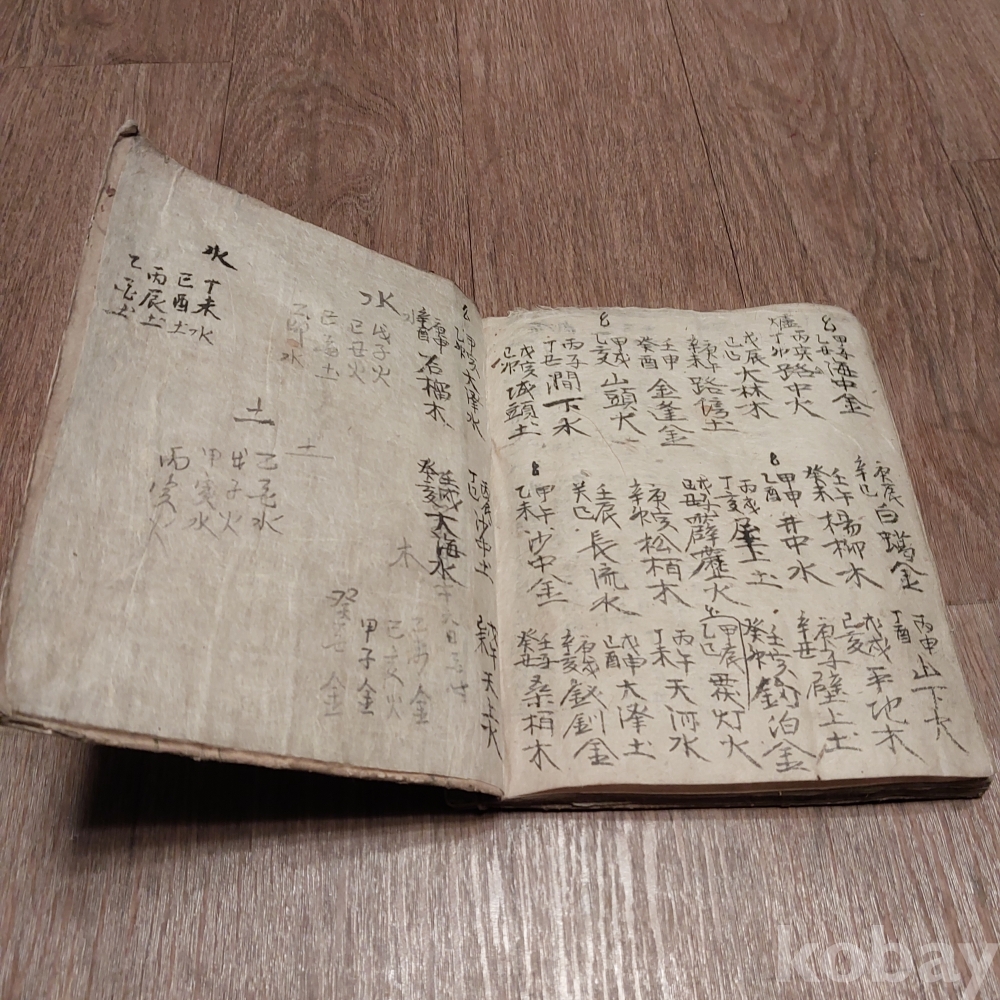 甲子 乙丑 海中金
爐
丙寅 丁卯 路中火
戊辰 己巳 大林木
庚午 辛未 路傍土
壬申 癸酉 金逢金
甲戌 乙亥 山頭火
丙子 丁丑 澗下水
戊寅 己卯 城頭土
庚辰 辛巳 白蠟金
壬午 癸未 楊柳木
甲申 乙酉 井中水
丙戌 丁亥 屋上土
戊子 己丑 霹靂火
庚寅 辛卯 松栢木
壬辰 癸巳 長流水
甲午 乙未 沙中金
丙申 丁酉 山下火
戊戌 己亥 平地木
庚子 辛丑 壁上土
壬寅 癸卯 釣泊金
甲辰 乙巳 覆灯火
丙午 丁未 天河水
戊申 己酉 大澤土
庚戌 辛亥 釵釧金
壬子 癸丑 桑栢木
甲寅 乙卯
庚申 辛酉 石榴木
丁巳 沙中土
壬戌 癸亥 大海水
天上火
水
水
戊子火
己丑火
乙卯水
水
丁未水
己酉土
丙辰土
土
土
子火
甲寅水
木
己亥火
甲子金
癸丑金
kobay